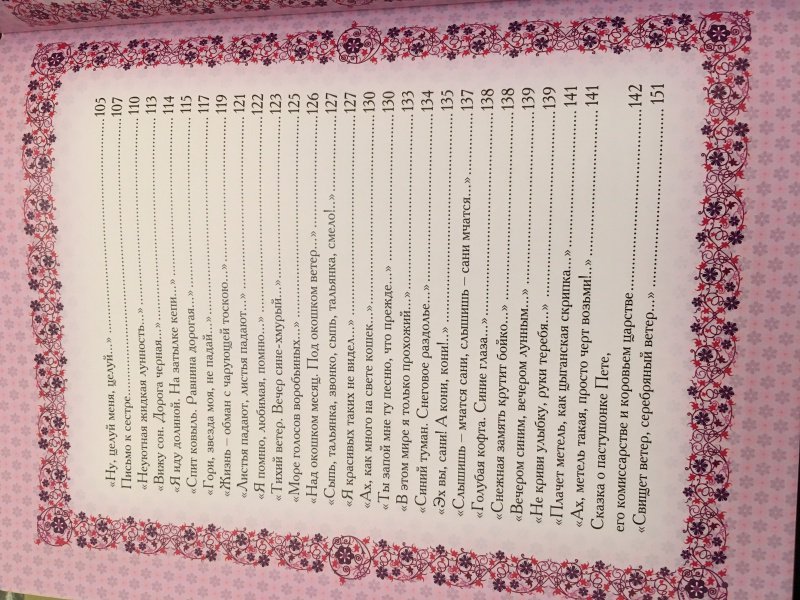 «Ну, целуй меня, целуй...» 105
Письмо к сестре 107
«Неуютная жидкая лунность...» 110
«Вижу сон. Дорога черная...» 113
«Я иду долиной. На затылке кепи...» 114
«Спит ковыль. Равнина дорогая...» 115
«Гори, звезда моя, не падай...» 117
«Жизнь – обман с чарующей тоскою...» 119
«Листья падают, листья падают...» 121
«Я помню, любимая, помню...» 122
«Тихий ветер. Вечер сине-хмурый...» 123
«Море голосов воробьиных...» 125
«Над окошком месяц. Под окошком ветер...» 126
«Сыпь, тальянка, звонко, сыпь, тальянка, смело!..» 127
«Я красивых таких не видел...» 127
«Ах, как много на свете кошек...» 130
«Ты запой мне ту песню, что прежде...» 130
«В этом мире я только прохожий...» 133
«Синий туман. Снеговое раздолье...» 134
«Эх вы, сани! А кони, кони!..» 135
«Слышишь – мчатся сани, слышишь – сани мчатся...» 137
«Голубая кофта. Синие глаза...» 138
«Снежная замять крутит бойко...» 138
«Вечером синим, вечером лунным...» 139
«Не криви улыбку, руки теребя...» 139
«Плачет метель, как цыганская скрипка...» 141
«Ах, метель такая, просто черт возьми! ..» 141
Сказка о пастушонке Пете,
его комиссарстве и коровьем царстве 142
«Свищет ветер, серебряный ветер...» 151